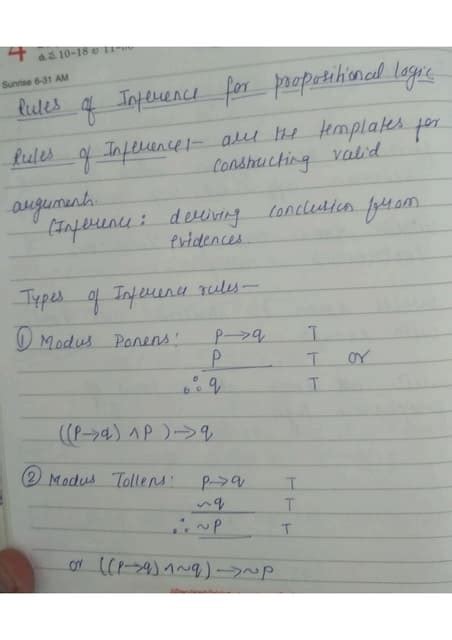 4
d. ≤ 10-18 e 11-
Sunrise 6-31 AM
Rules of Inference for propositional logic
Rules of Inference:- are the templates for
constructing valid
argument.
(Inference: deriving conclusion from
evidences
Types of Inference rules—
① Modus Ponens: P→q T
P T or
∴ q T
((P→q) ∧ P) → q
② Modus Tollens: P→q T
~q T
∴ ~P T
or ((P→q) ∧ ~q) → ~P